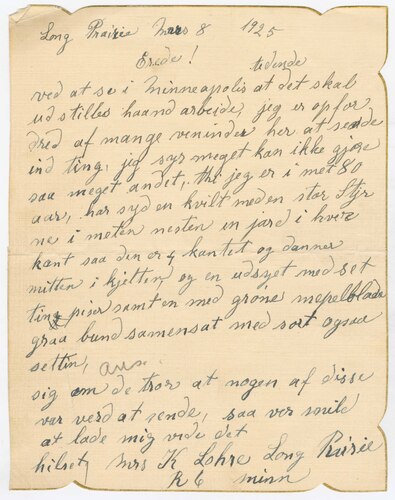 Long Prairie Mars 8 1925
Erede!
tidende
ved at se i Minneapolis at det skal
udstilles haand arbeide, jeg er opfor
dred af mange veninder her at sende
ind ting, jeg sys meget kan ikke gjøre
saa meget andet, thi jeg er i met 80
aar, har syd en kvilt med en stor Stjr
ne i meten nesten en jard i hver
kant saa den er 4 kantet og danner
mitten i kjilten, og en udsyet med set
ting piser samt en med grøne mepelblade
graa bund samensat med sort ogsaa
settin,
sig om de tror at nogen af disse
var verd at sende, saa ver snild
at lade mig vide det
hilset Mrs K Lohre Long Prairie
R 6 Minn